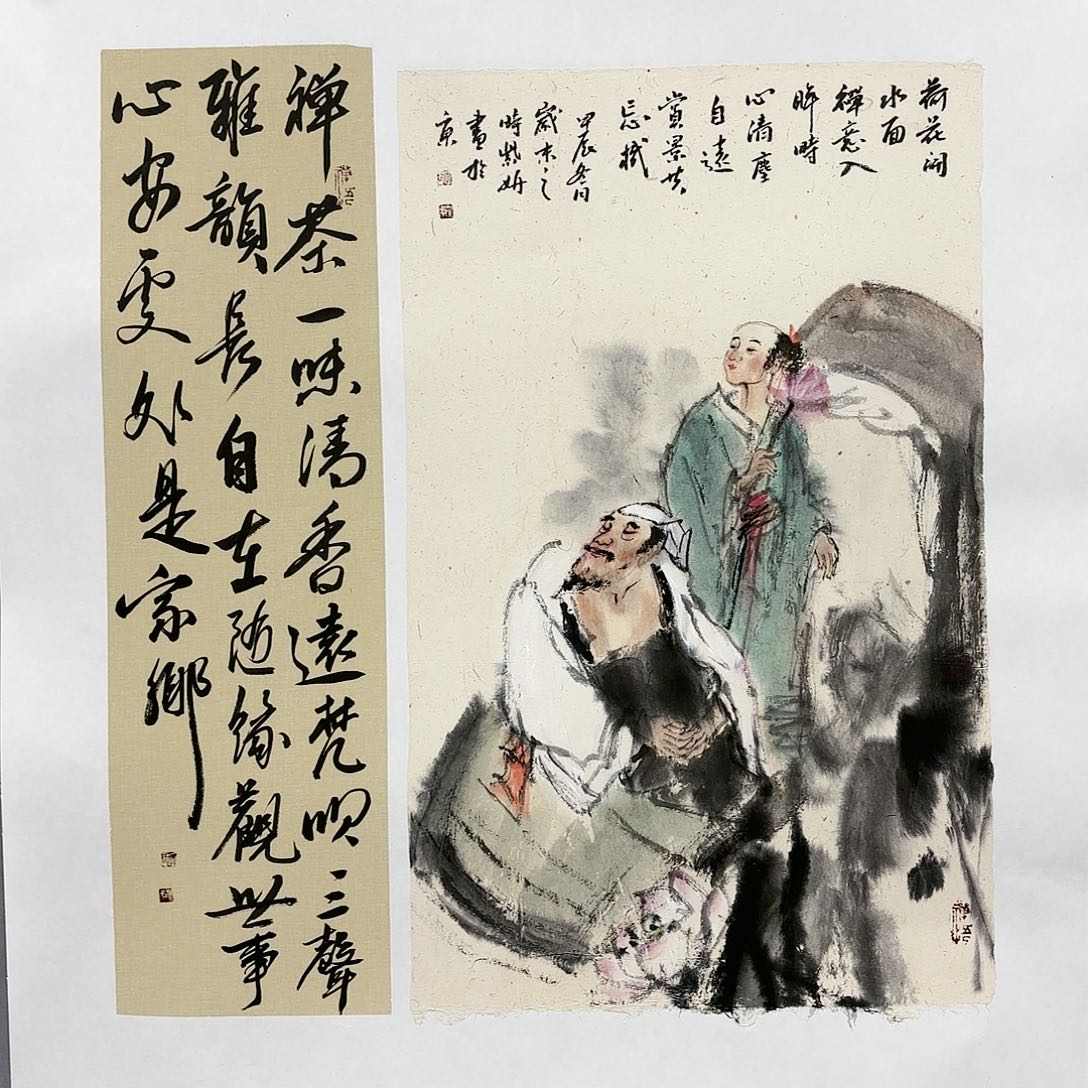 荷花開
水面
禪意入
眸時
心清塵
自遠
賞景共
忘機
甲辰冬月
歲末之
時
畫於
京
禅茶一味清香遠梵唄三聲
雅韻長自在随緣觀世事
心安處处是家鄉